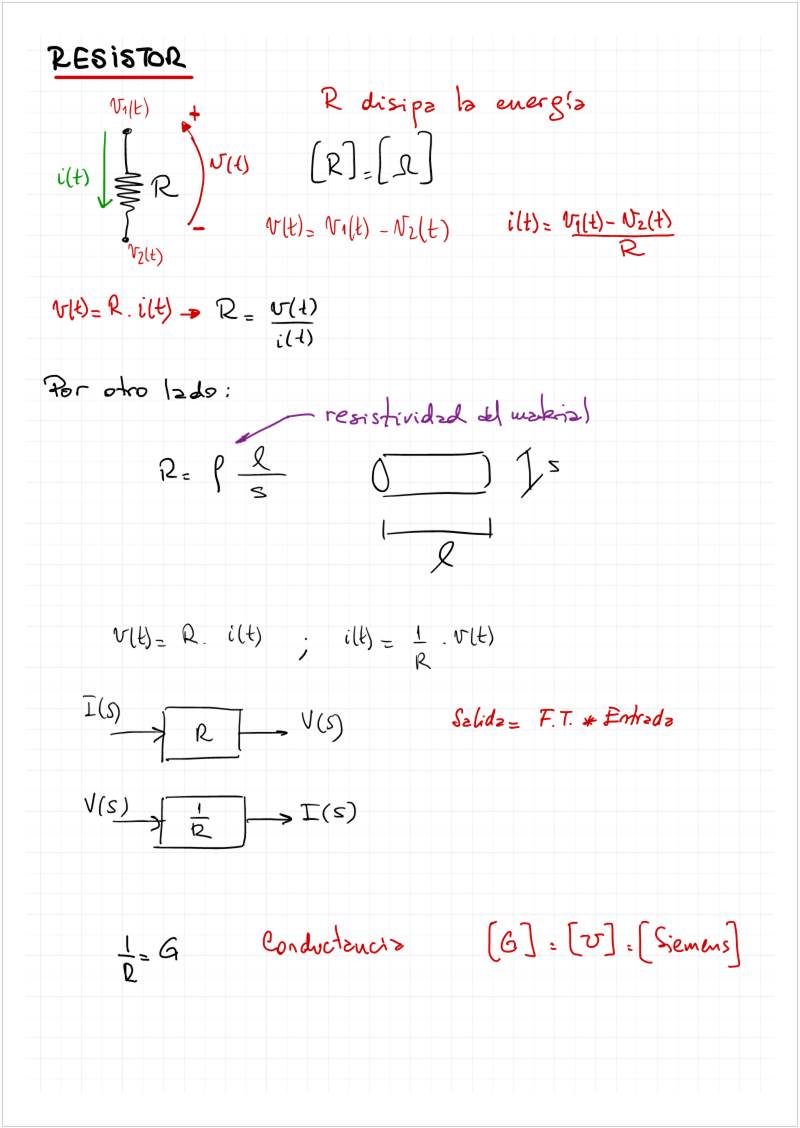 RESISTOR
V1(t)
+
R disipa la energía
i(t)
R
v(t)
[R]=[Ω]
-
V2(t)
v(t)= V1(t) - V2(t)
i(t)= V1(t) - V2(t) / R
v(t)= R. i(t) → R = v(t) / i(t)
Por otro lado:
resistividad del material
R= ρ l / s
s
l
v(t)= R. i(t) ; i(t) = 1/R . v(t)
I(s)
R
V(s)
Salida= F.T. * Entrada
V(s)
1/R
I(s)
1/R = G
Conductancia
[G] = [℧] = [Siemens]